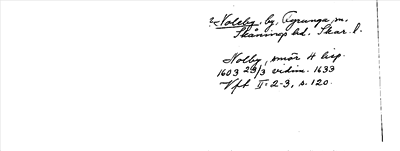 ? Noleby, by, Agrunga sn.
Skånings hd. Skar. l.
Nolby, smör 4 lisp.
1603 29/3 vidim. 1633
Vfl II: 2-3, s. 120.